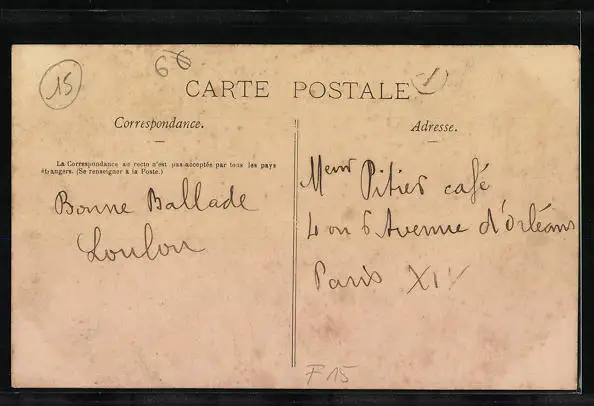 15
60
CARTE POSTALE
1
Correspondance.
Adresse.
La Correspondance au recto n'est pas acceptée par tous les pays
étrangers. (Se renseigner à la Poste.)
Bonne Ballade
Loulou
Meur Pities café
4 ou 6 Avenue d'Orléans
Paris XIV
F15